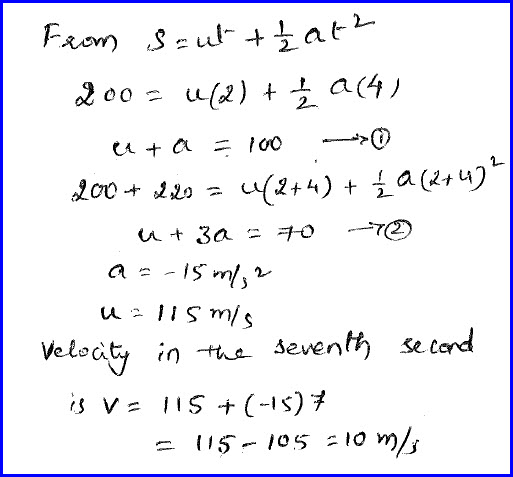 From S = ut + 1/2 at²
200 = u(2) + 1/2 a(4)
u + a = 100 → ①
200 + 220 = u(2+4) + 1/2 a(2+4)²
u + 3a = 70 → ②
a = -15 m/s²
u = 115 m/s
Velocity in the seventh second
is V = 115 + (-15)7
= 115 - 105 = 10 m/s